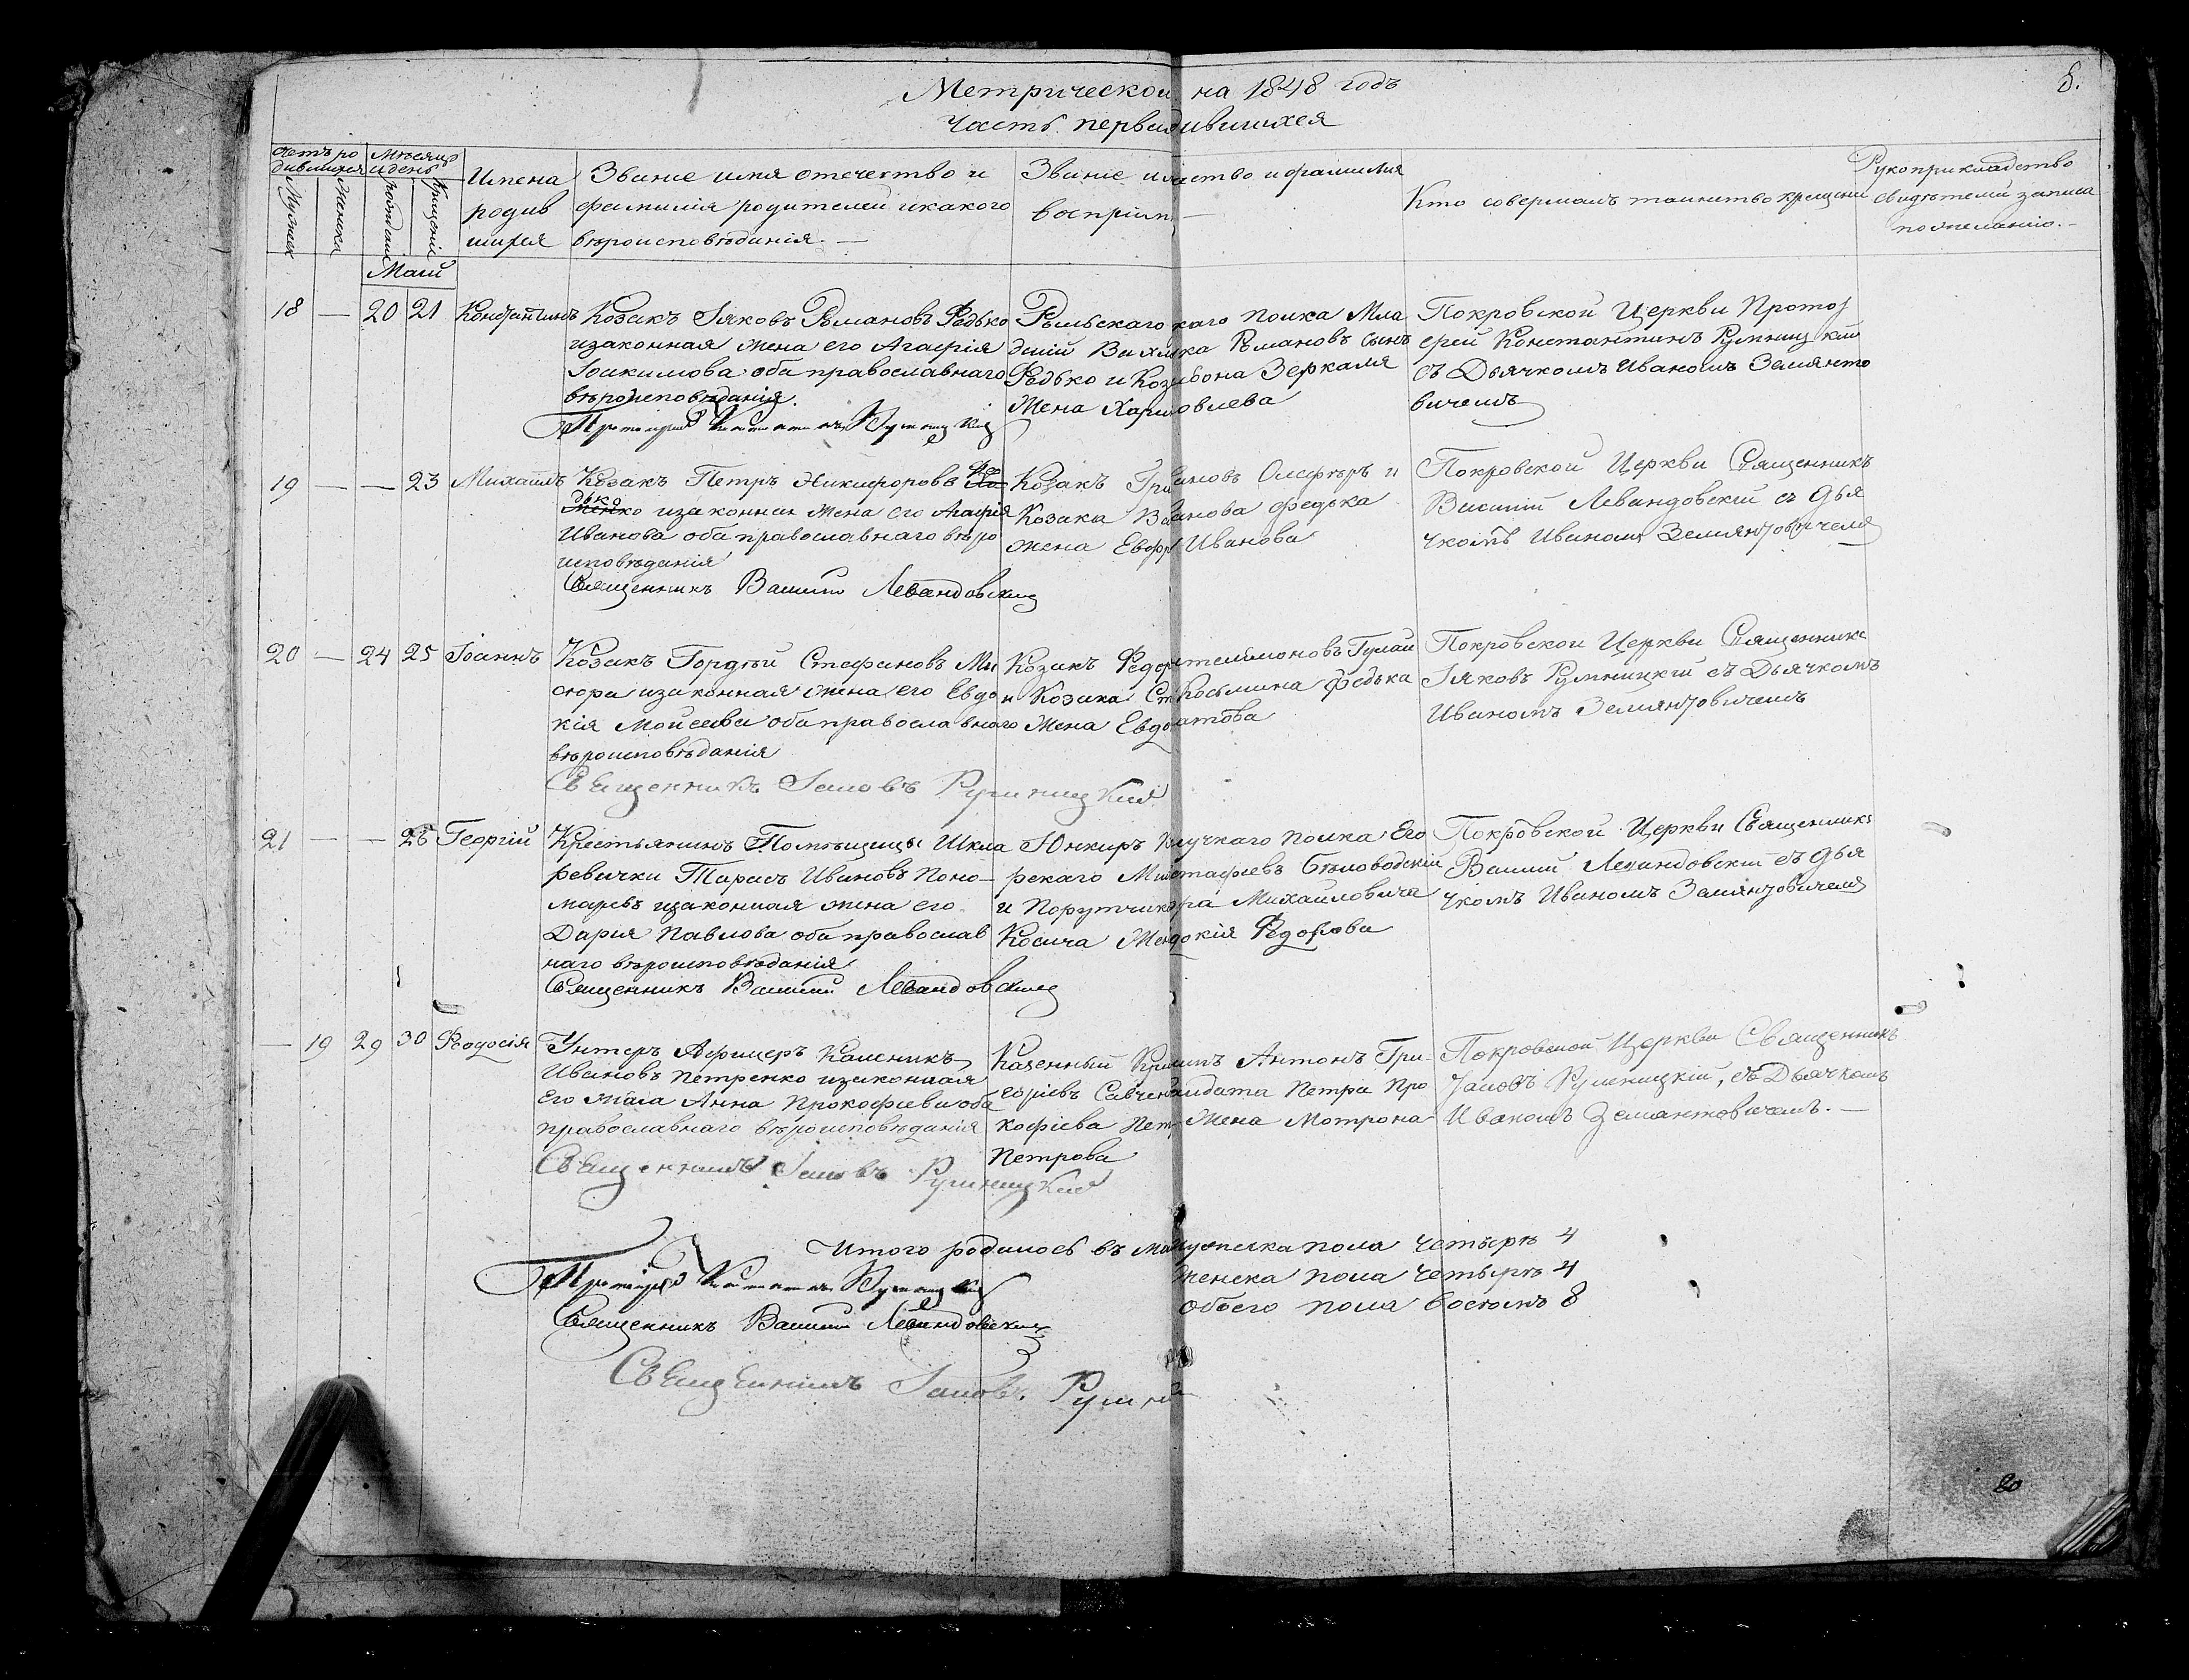 Метрической на 1848 годъ
8.
Часть перва дившихся
Счетъ родившихся
Мужеск
Женска
Мѣсяцъ и день
рождени
крещені
Имена родив шихся
Званіе имя отечество и фамилія родителей и какого вѣроисповѣданія. —
Званіе и чество и фамилия воспріим —
Кто совершалъ таинство крещени
Рукоприкладство свидѣтелей записа по желанію. —
Маій
18 — 20 21 Константинъ
Козакъ Іяковъ Романовъ Федько
изаконная жена его Агафія
Іоакимова оба православнаго
вѣроисповѣданія.
Протоіерей Константинъ Румницкій
Рыльскаго каго полка Мла
дшій Романовъ сынъ
Федько и Коз бона Зеркаля
Жена Хар овлева
Покровской Церкви Протоі
ерей Константинъ Румницкій
съ Дьячкомъ Иваномъ Земянто
вичемъ
19 — — 23 Михаилъ
Козакъ Петръ Никифоровъ Фе
дько изаконная жена его Агафія
Иванова оба православнаго вѣро
исповѣданія
Священникъ Василій Левандовскій
Козакъ Гри ановъ Олефѣръ и
Козака Ва анова Федька
жена Евфр Иванова
Покровской Церкви Священникъ
Василій Левандовскій съ Дья
чкомъ Иваномъ Земянтовичемъ
20 — 24 25 Іоаннъ
Козакъ Гордѣй Стефановъ Ми
сюра изаконная жена его Евдо
кія Мойсеева оба православнаго
вѣроисповѣданія
Священникъ Іаковъ Румницкій
Козакъ Федор телимоновъ Гулай
и Козака Ст Косьмина Федька
Жена Евдо атова
Покровской Церкви Священникъ
Іяковъ Румницкій съ Дьячкомъ
Иваномъ Земянтовичемъ
21 — — 25 Георгій
Крестьянинъ Помѣщицы Шкля
ревички Тарасъ Ивановъ Поно—
маревъ изаконная жена его
Дарія Павлова оба православ
наго вѣроисповѣданія
Священникъ Василій Левандовскій
Юнкиръ К учкаго полка Его
рскаго Ми стафіевъ Бѣловодскій
и Порутчика ра Михайловича
Косича Жен докія Федорова
Покровской Церкви Священникъ
Василій Левандовскій съ Дья
чкомъ Иваномъ Земянтовичемъ
— 19 29 30 Феодосія
Унтеръ Афицеръ Каленикъ
Ивановъ Петренко изаконная
его жена Анна Прокофіева оба
православнаго вѣроисповѣданія
Священникъ Іаковъ Румницкій
Казенный Кр нъ Антонъ Гри—
горіевъ Савчен лдата Петра Про
кофіева Пет Жена Мотрона
Петрова
Покровской Церкви Священникъ
Іаковъ Румницкій, съ Дьячкомъ
Иваномъ Земантовичемъ. —
Итого родилось въ ма мужеска пола четыре 4
женска пола четыре 4
обоего пола восемъ 8
Протоіерей Константинъ Румницкій
Священникъ Василій Левандовскій
Священникъ Іаковъ Румни
20